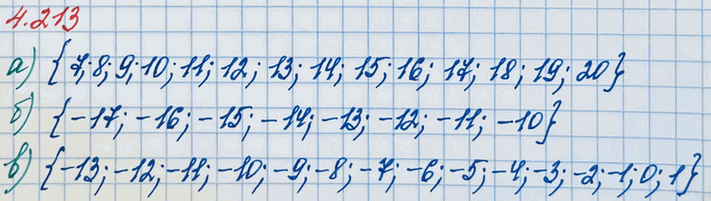 4.213
а) {7; 8; 9; 10; 11; 12; 13; 14; 15; 16; 17; 18; 19; 20}
б) {-17; -16; -15; -14; -13; -12; -11; -10}
в) {-13; -12; -11; -10; -9; -8; -7; -6; -5; -4; -3; -2; -1; 0; 1}